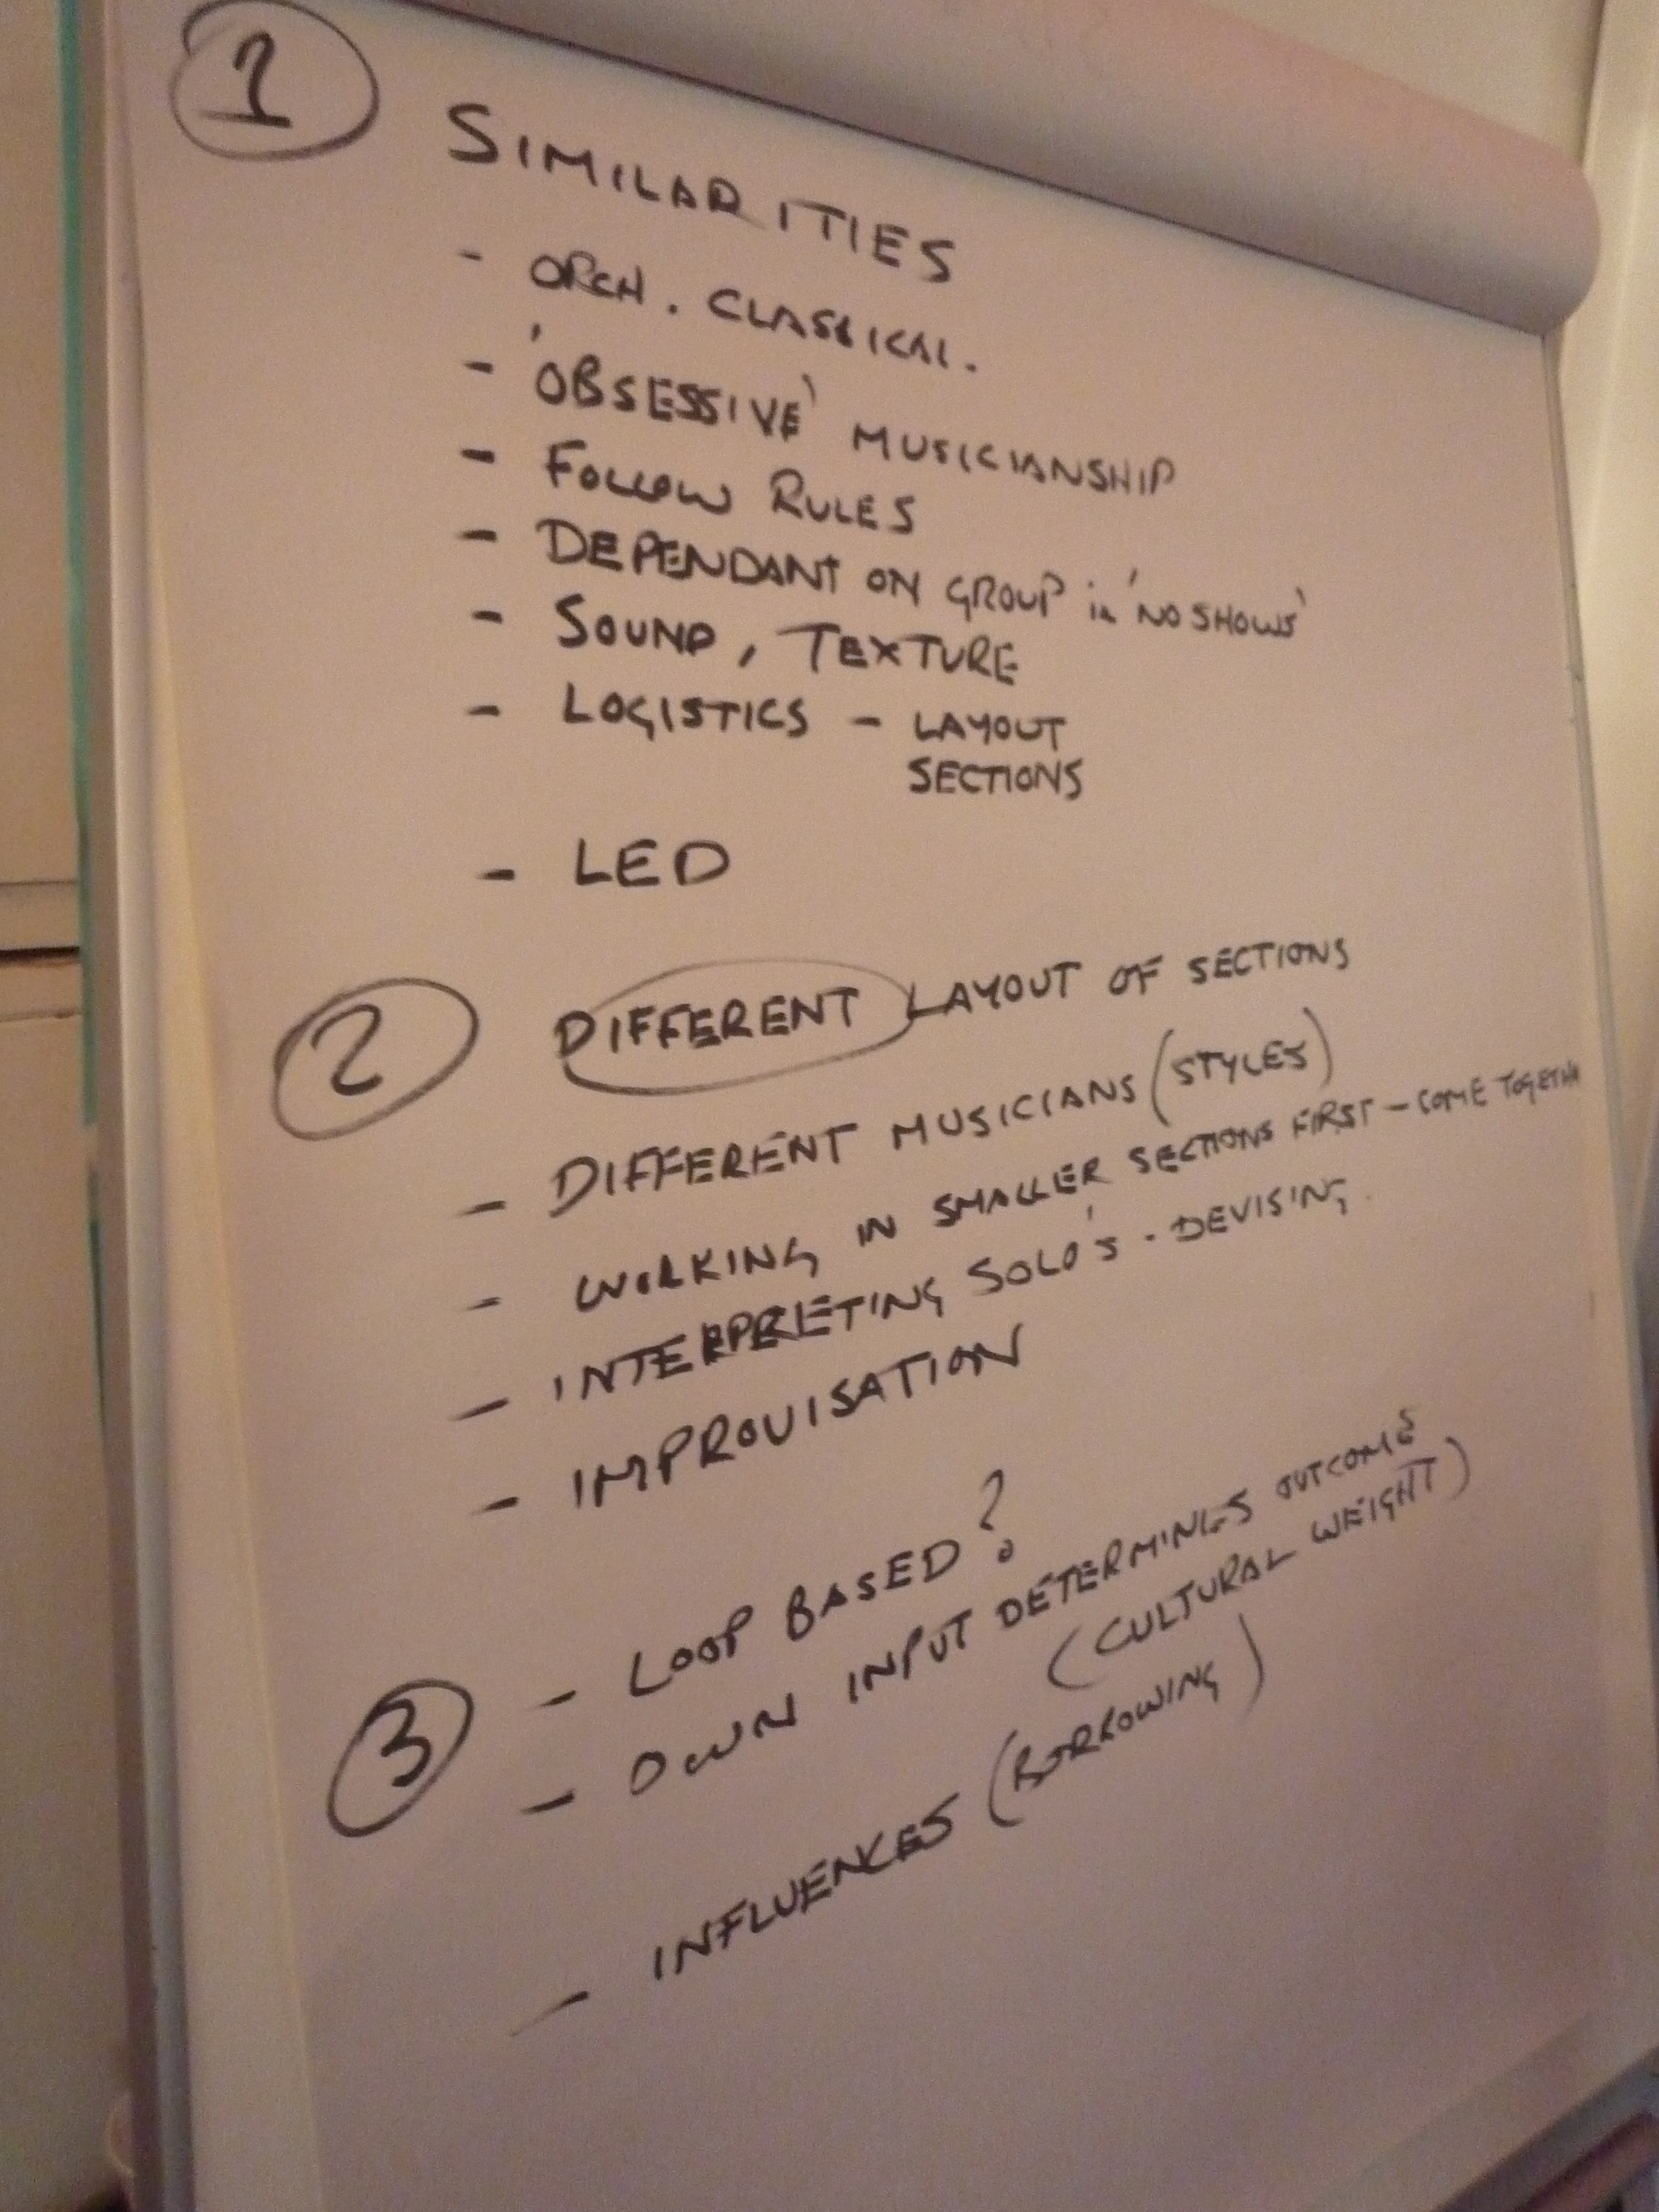 1
SIMILARITIES
- ORCH. CLASSICAL.
- 'OBSESSIVE' MUSICIANSHIP
- FOLLOW RULES
- DEPENDANT ON GROUP in 'NO SHOWS'
- SOUND, TEXTURE
- LOGISTICS - LAYOUT
SECTIONS
- LED
2 DIFFERENT LAYOUT OF SECTIONS
- DIFFERENT MUSICIANS (STYLES)
- WORKING IN SMALLER SECTIONS FIRST - COME TOGETHER
- INTERPRETING SOLO'S - DEVISING.
- IMPROVISATION
3 - LOOP BASED?
- OWN INPUT DETERMINES OUTCOMES
(CULTURAL WEIGHT)
- INFLUENCES (BORROWING)